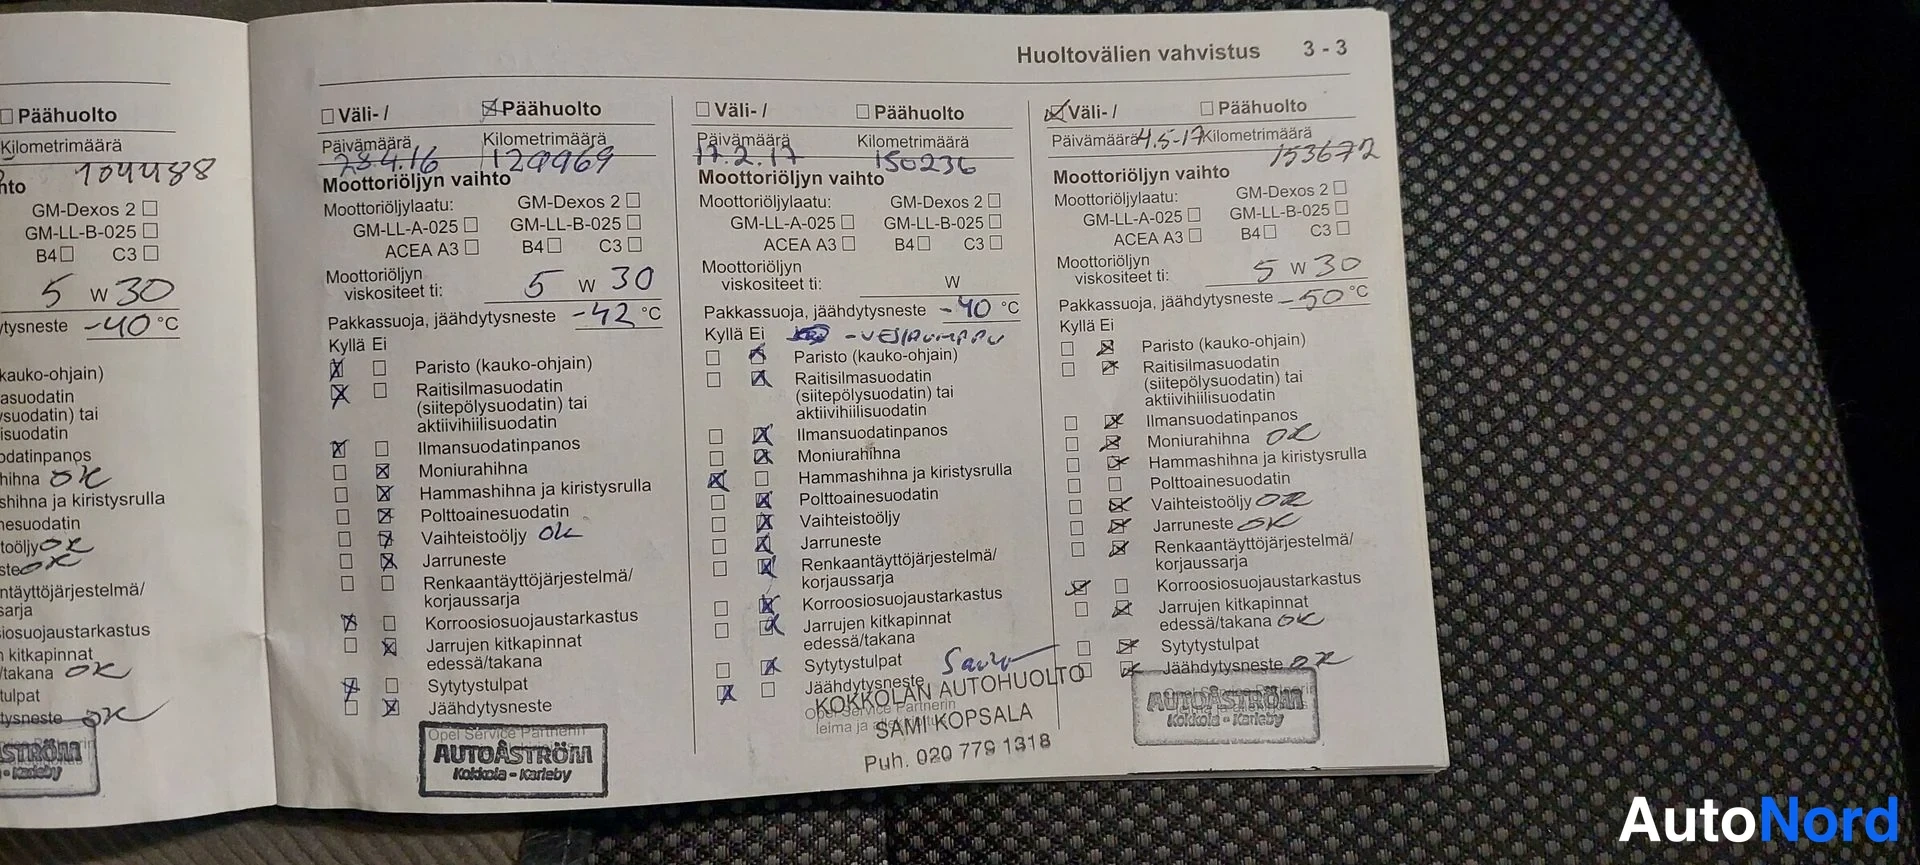 Huoltovälien vahvistus 3 - 3
Päähuolto
Kilometrimäärä
104488
hto
GM-Dexos 2
GM-LL-B-025
B4 C3
5 W 30
ytysneste -40 °C
kauko-ohjain)
asuodatin
ysuodatin) tai
isuodatin
odatinpanos
hihna OK
shihna ja kiristysrulla
nesuodatin
toöljy OK
ste OK
ntäyttöjärjestelmä/
sarja
iosuojaustarkastus
n kitkapinnat
/takana OK
tulpat
tysneste OK
STRÖM
- Karleby
Väli- / Päähuolto
Päivämäärä Kilometrimäärä
28.4.16 129969
Moottoriöljyn vaihto
Moottoriöljylaatu: GM-Dexos 2
GM-LL-A-025 GM-LL-B-025
ACEA A3 B4 C3
Moottoriöljyn
viskositeet ti: 5 W 30
Pakkassuoja, jäähdytysneste -42 °C
Kyllä Ei
Paristo (kauko-ohjain)
Raitisilmasuodatin
(siitepölysuodatin) tai
aktiivihiilisuodatin
Ilmansuodatinpanos
Moniurahihna
Hammashihna ja kiristysrulla
Polttoainesuodatin
Vaihteistoöljy OK
Jarruneste
Renkaantäyttöjärjestelmä/
korjaussarja
Korroosiosuojaustarkastus
Jarrujen kitkapinnat
edessä/takana
Sytytystulpat
Jäähdytysneste
Opel Service Partnerin
AUTOÅSTRÖM
Kokkola - Karleby
Väli- / Päähuolto
Päivämäärä Kilometrimäärä
17.2.17 150236
Moottoriöljyn vaihto
Moottoriöljylaatu: GM-Dexos 2
GM-LL-A-025 GM-LL-B-025
ACEA A3 B4 C3
Moottoriöljyn
viskositeet ti: W
Pakkassuoja, jäähdytysneste -40 °C
Kyllä Ei -VESIPUMPPU
Paristo (kauko-ohjain)
Raitisilmasuodatin
(siitepölysuodatin) tai
aktiivihiilisuodatin
Ilmansuodatinpanos
Moniurahihna
Hammashihna ja kiristysrulla
Polttoainesuodatin
Vaihteistoöljy
Jarruneste
Renkaantäyttöjärjestelmä/
korjaussarja
Korroosiosuojaustarkastus
Jarrujen kitkapinnat
edessä/takana
Sytytystulpat
Jäähdytysneste
Opel Service Partnerin
leima ja
KOKKOLAN AUTOHUOLTO
SAMI KOPSALA
Puh. 020 779 1318
Väli- / Päähuolto
Päivämäärä 4.5-17 Kilometrimäärä
153672
Moottoriöljyn vaihto
Moottoriöljylaatu: GM-Dexos 2
GM-LL-A-025 GM-LL-B-025
ACEA A3 B4 C3
Moottoriöljyn
viskositeet ti: 5 W 30
Pakkassuoja, jäähdytysneste -50 °C
Kyllä Ei
Paristo (kauko-ohjain)
Raitisilmasuodatin
(siitepölysuodatin) tai
aktiivihiilisuodatin
Ilmansuodatinpanos
Moniurahihna OK
Hammashihna ja kiristysrulla
Polttoainesuodatin
Vaihteistoöljy OK
Jarruneste OK
Renkaantäyttöjärjestelmä/
korjaussarja
Korroosiosuojaustarkastus
Jarrujen kitkapinnat
edessä/takana OK
Sytytystulpat
Jäähdytysneste OK
AUTOÅSTRÖM
Kokkola - Karleby
AutoNord